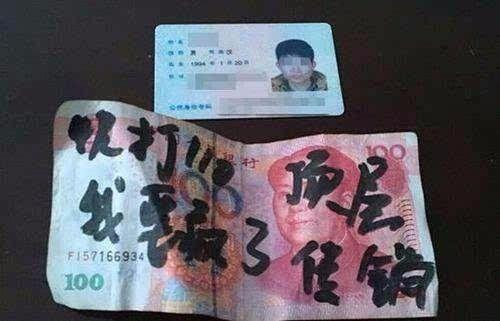 姓名
性别 男 民族 汉
出生 1994 年 1 月 20 日
住址
公民身份号码
打110
我要疯了
顶层
传销
行
100
FI57166934
100